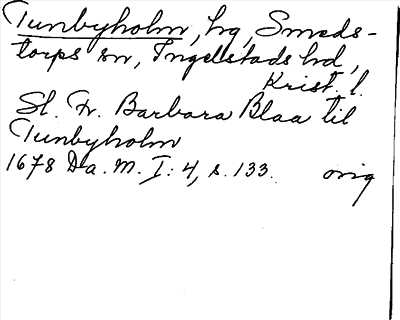 Tunbyholm, hg, Smeds-
torps sn, Ingelstads hd,
Krist. l.
Sl. Fr. Barbara Blaa til
Tunbyholm
1678 Da. M. I: 4, s. 133. orig